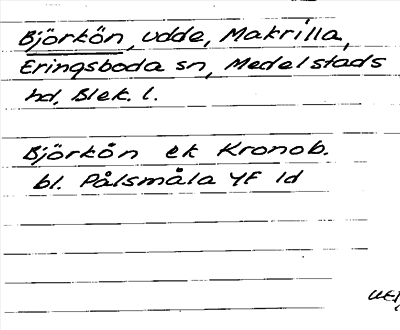 Björkön, udde, Makrilla,
Eringsboda sn, Medelstads
hd, Blek. l.
Björkön ek Kronob.
bl. Pålsmåla YF 1d